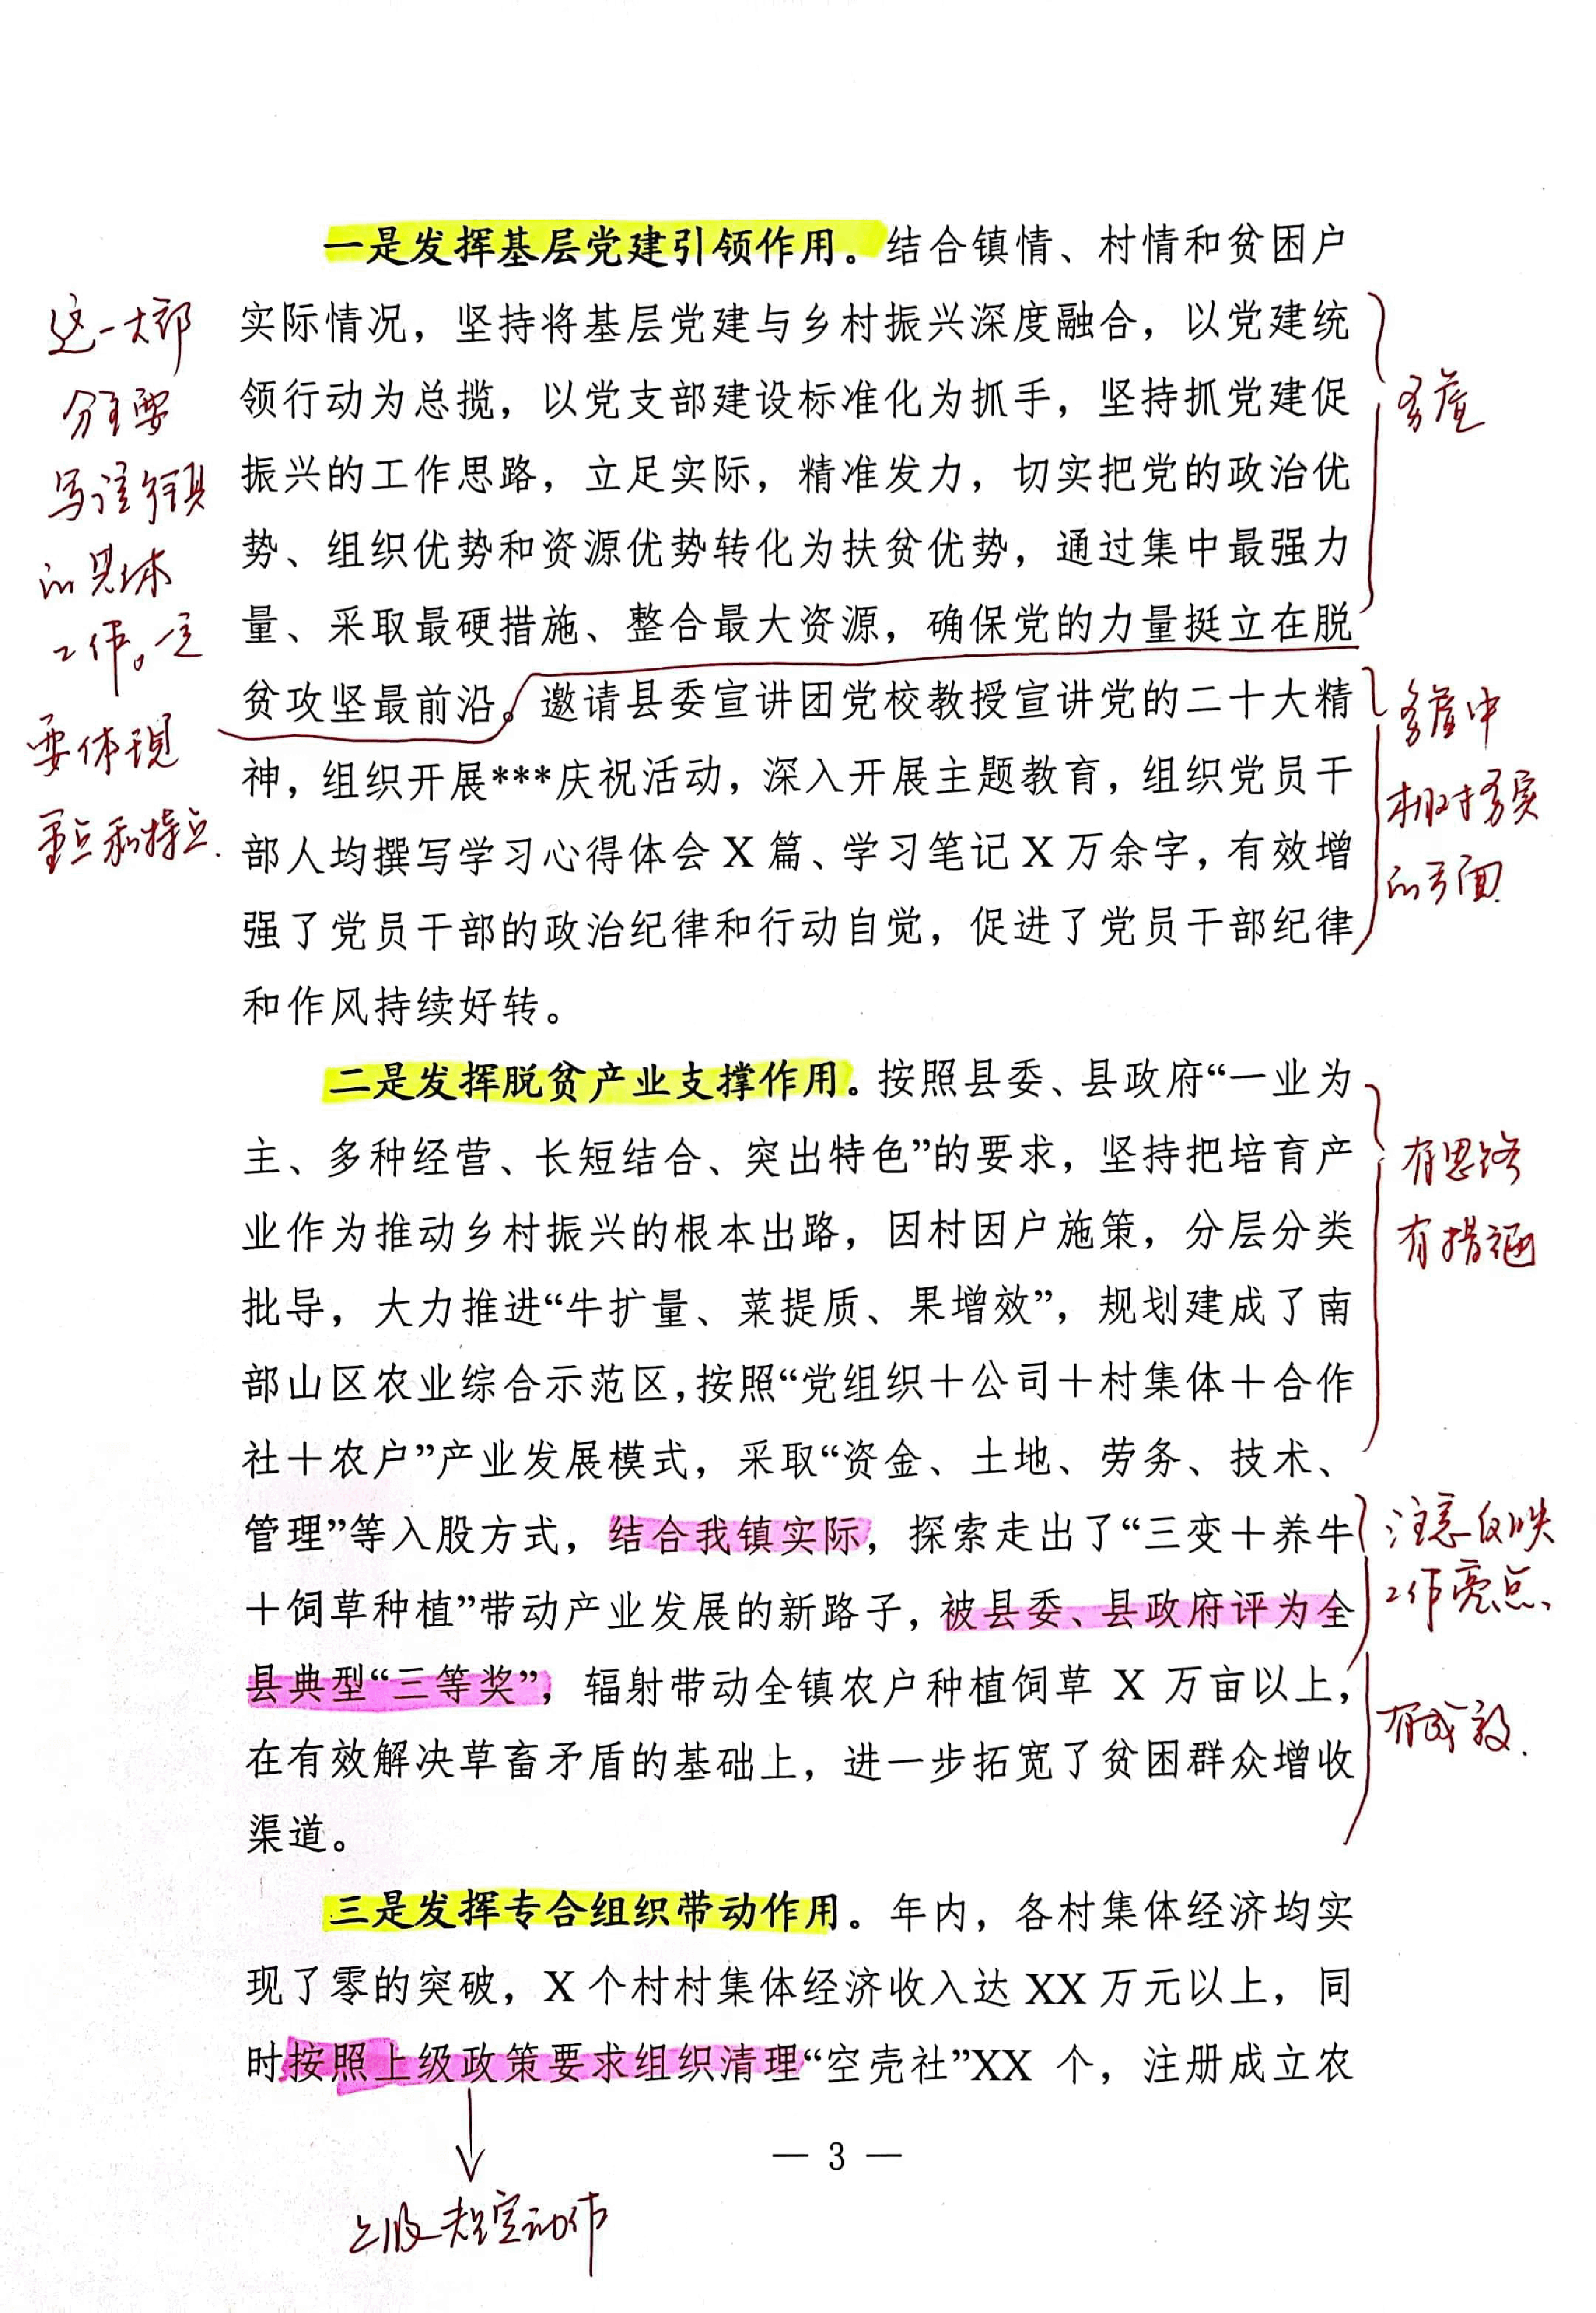 一是发挥基层党建引领作用。结合镇情、村情和贫困户
实际情况，坚持将基层党建与乡村振兴深度融合，以党建统
领行动为总揽，以党支部建设标准化为抓手，坚持抓党建促
振兴的工作思路，立足实际，精准发力，切实把党的政治优
势、组织优势和资源优势转化为扶贫优势，通过集中最强力
量、采取最硬措施、整合最大资源，确保党的力量挺立在脱
贫攻坚最前沿。邀请县委宣讲团党校教授宣讲党的二十大精
神，组织开展***庆祝活动，深入开展主题教育，组织党员干
部人均撰写学习心得体会 X 篇、学习笔记 X 万余字，有效增
强了党员干部的政治纪律和行动自觉，促进了党员干部纪律
和作风持续好转。
二是发挥脱贫产业支撑作用。按照县委、县政府“一业为
主、多种经营、长短结合、突出特色”的要求，坚持把培育产
业作为推动乡村振兴的根本出路，因村因户施策，分层分类
批导，大力推进“牛扩量、菜提质、果增效”，规划建成了南
部山区农业综合示范区，按照“党组织＋公司＋村集体＋合作
社＋农户”产业发展模式，采取“资金、土地、劳务、技术、
管理”等入股方式，结合我镇实际，探索走出了“三变＋养牛
＋饲草种植”带动产业发展的新路子，被县委、县政府评为全
县典型“三等奖”，辐射带动全镇农户种植饲草 X 万亩以上，
在有效解决草畜矛盾的基础上，进一步拓宽了贫困群众增收
渠道。
三是发挥专合组织带动作用。年内，各村集体经济均实
现了零的突破，X 个村村集体经济收入达 XX 万元以上，同
时按照上级政策要求组织清理“空壳社”XX 个，注册成立农
— 3 —
这一大部
分主要
写这领
的具体
工作。一定
要体现
重点和特点.
务虚
务虚中
相对务实
的方面.
有思路
有措施
注意反映
工作亮点、
有成效.
上级规定动作